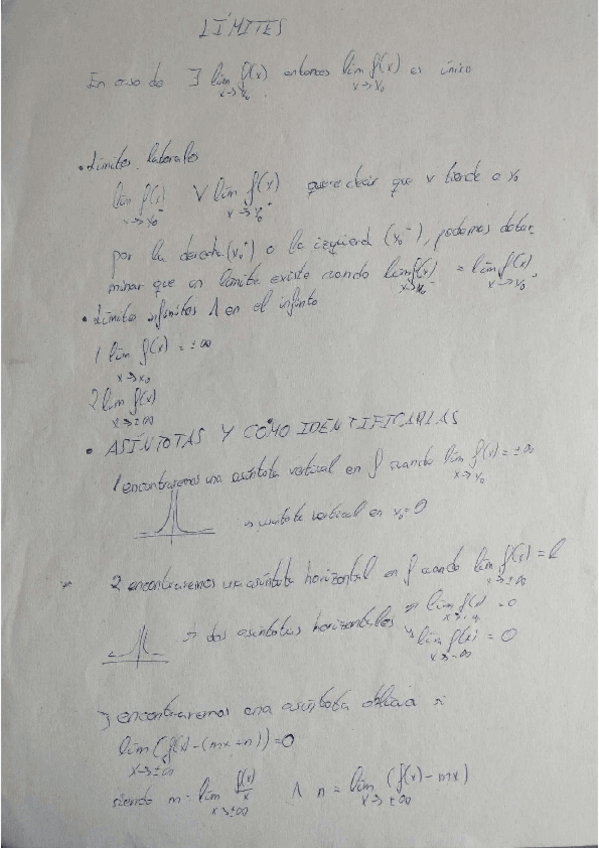 LÍMITES
En caso de ∃ lim f(x) entonces lim f(x) es único
x→x₀ x→x₀
• Límites laterales
lim f(x) ∨ lim f(x) quiere decir que x tiende a x₀
x→x₀⁻ x→x₀⁺
por la derecha (x₀⁺) o la izquierd (x₀⁻), podemos deter
minar que un límite existe cuando lim f(x) = lim f(x)
x→x₀⁻ x→x₀⁺
• Límites infinitos ∧ en el infinito
1 lim f(x) = ±∞
x→x₀
2 lim f(x)
x→±∞
• ASÍNTOTAS Y CÓMO IDENTIFICARLAS
1 encontraremos una asíntota vertical en f cuando lim f(x) = ±∞
x→x₀
asíntota vertical en x₀ = 0
2 encontraremos una asíntota horizontal en f cuando lim f(x) = k
x→±∞
dos asíntotas horizontales lim f(x) = 0
lim f(x) = 0
x→-∞
3 encontraremos una asíntota oblicua si
lim (f(x) - (mx+n)) = 0
x→±∞
siendo m = lim f(x)/x ∧ n = lim (f(x) - mx)
x→±∞ x→±∞